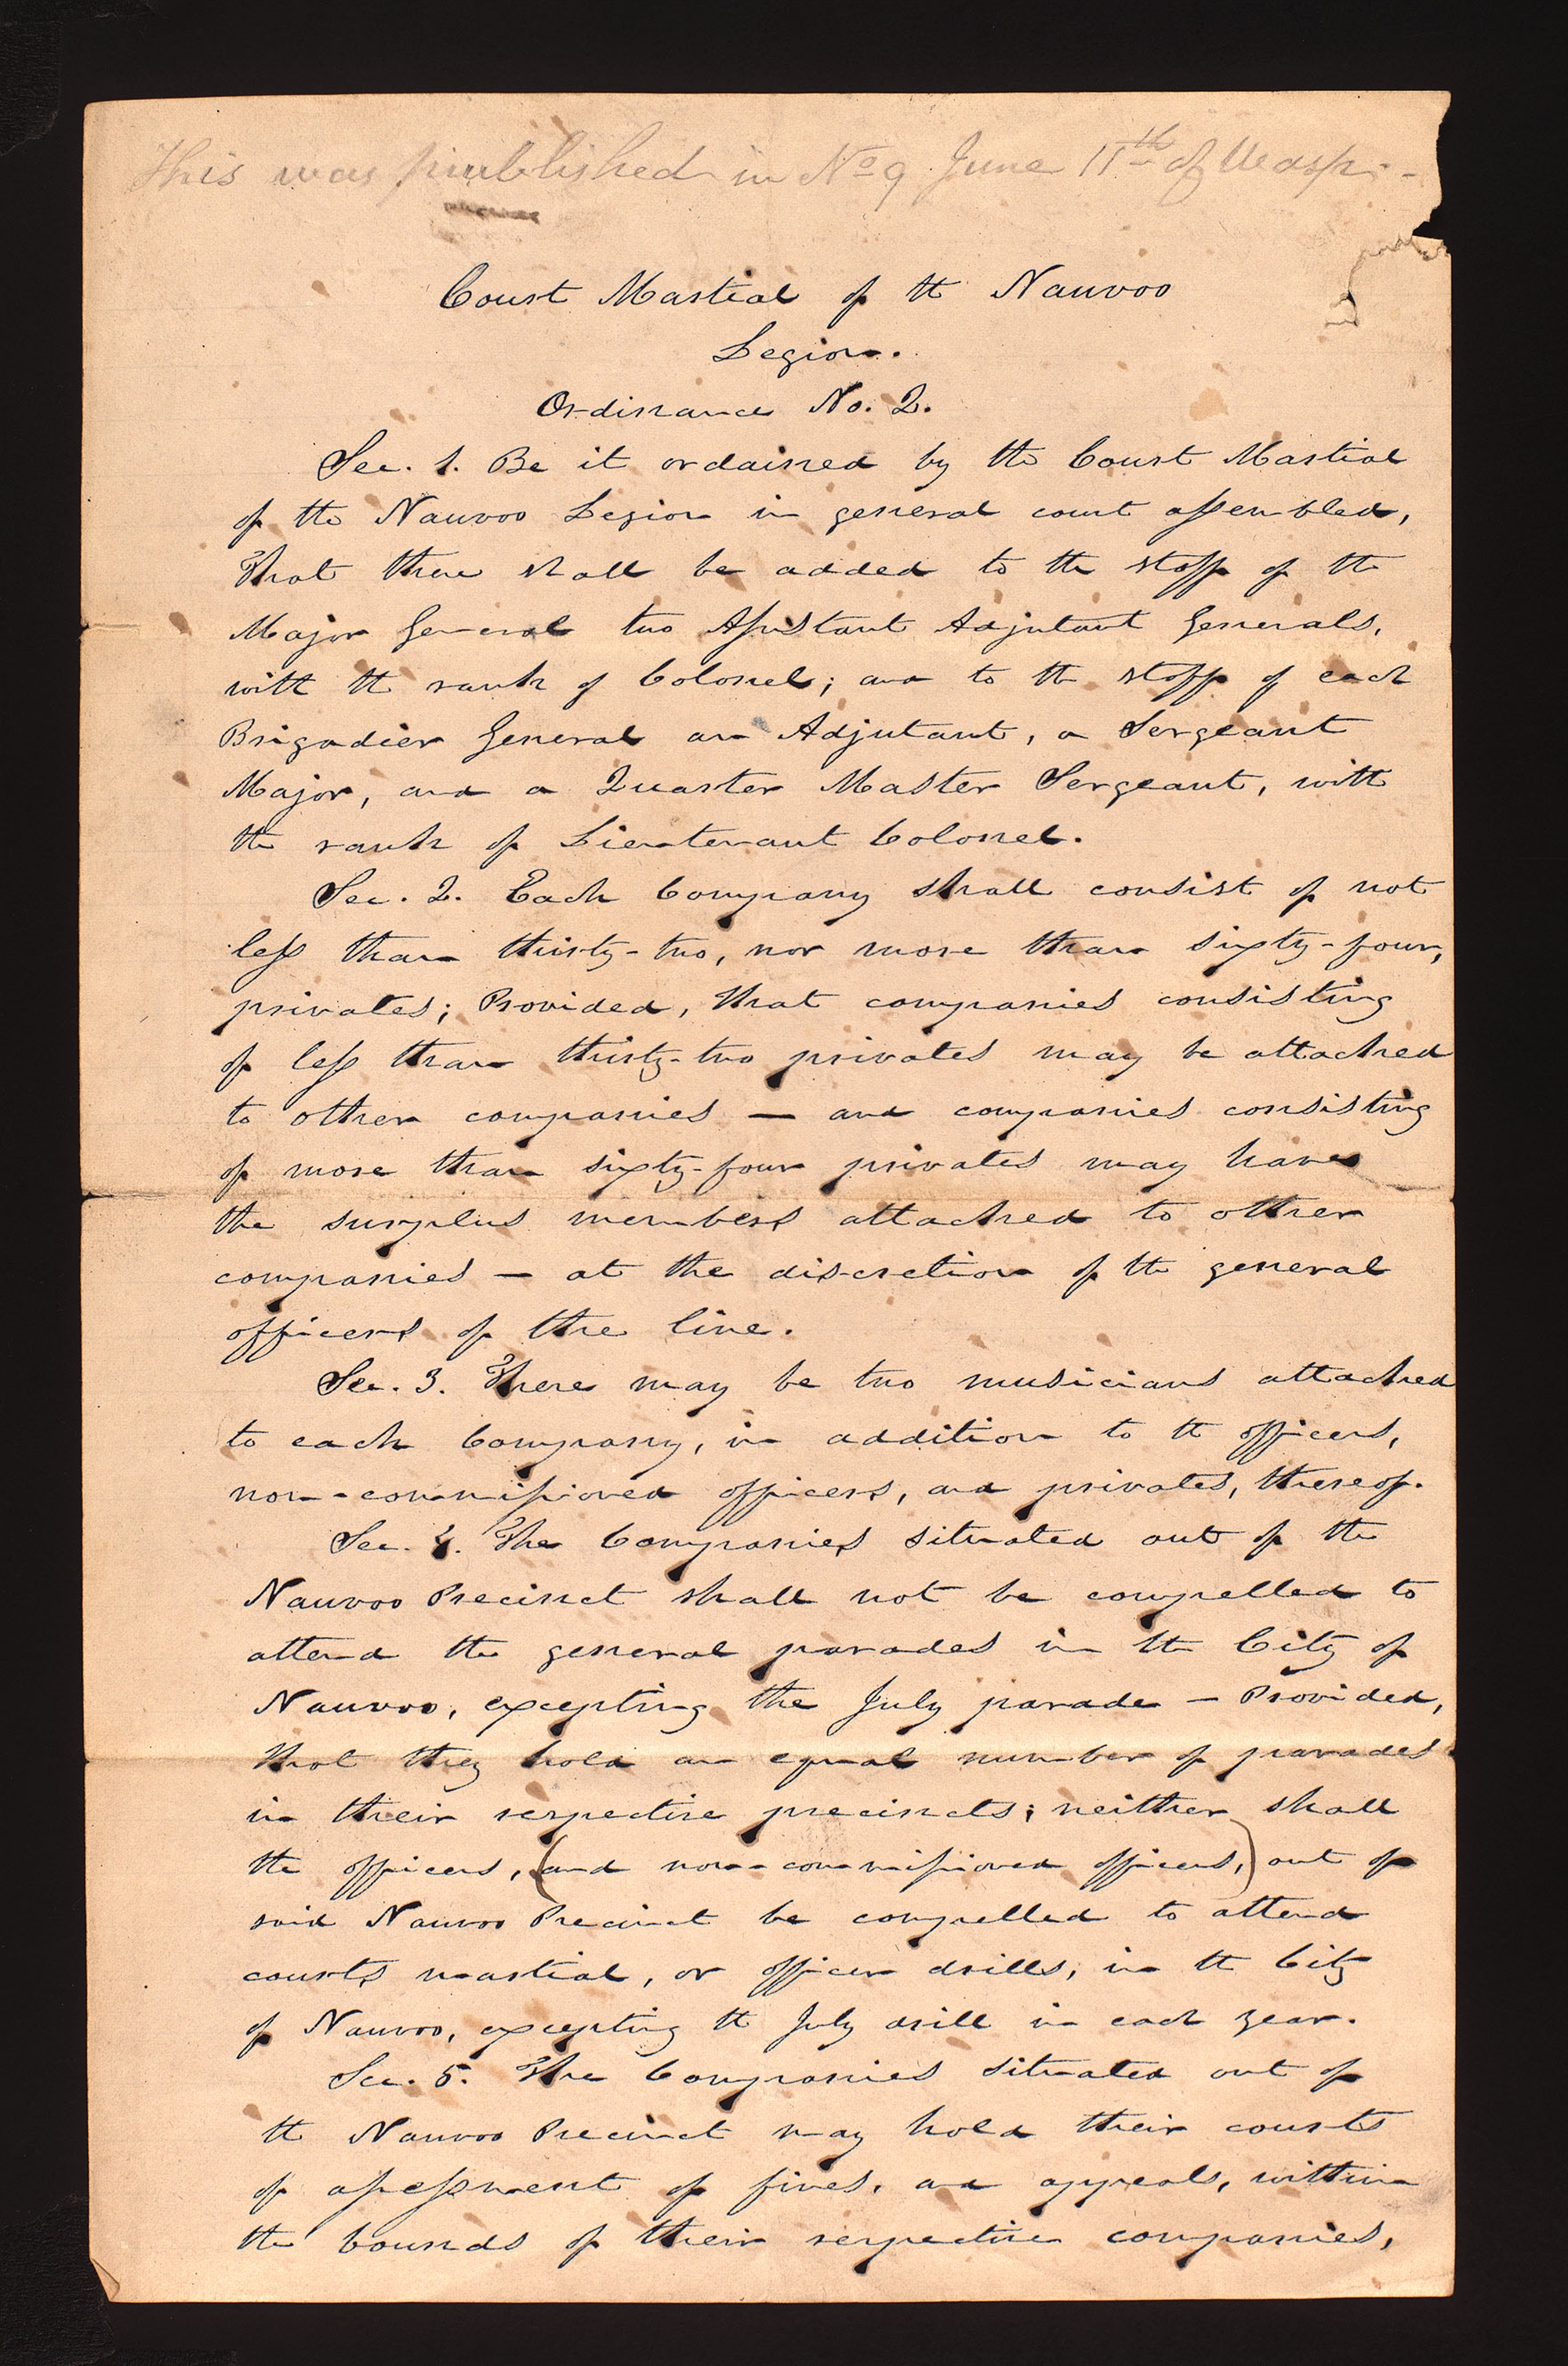 This was published in No 9 June 11th of Wasp.-
Court Martial of the Nauvoo
Legion.
Ordinance No. 2.
Sec. 1. Be it ordained by the Court Martial
of the Nauvoo Legion in general court assembled,
That there shall be added to the staff of the
Major General two Assistant Adjutant Generals,
with the rank of Colonel; and to the staff of each
Brigadier General an Adjutant, a Sergeant
Major, and a Quarter Master Sergeant, with
the rank of Lieutenant Colonel.
Sec. 2. Each Company shall consist of not
less than thirty-two, nor more than sixty-four,
privates; Provided, that companies consisting
of less than thirty-two privates may be attached
to other companies — and companies consisting
of more than sixty-four privates may have
the surplus members attached to other
companies — at the discretion of the general
officers of the line.
Sec. 3. There may be two musicians attached
to each Company, in addition to the officers,
non-commissioned officers, and privates, thereof.
Sec. 4. The Companies situated out of the
Nauvoo Precinct shall not be compelled to
attend the general parades in the City of
Nauvoo, excepting the July parade — Provided,
that they hold an equal number of parades
in their respective precincts; neither shall
the officers, (and non-commissioned officers,) out of
said Nauvoo Precinct be compelled to attend
courts martial, or officer drills, in the City
of Nauvoo, excepting the July drill in each year.
Sec. 5. The Companies situated out of
the Nauvoo Precinct may hold their courts
of assessment of fines, and appeals, within
the bounds of their respective companies,